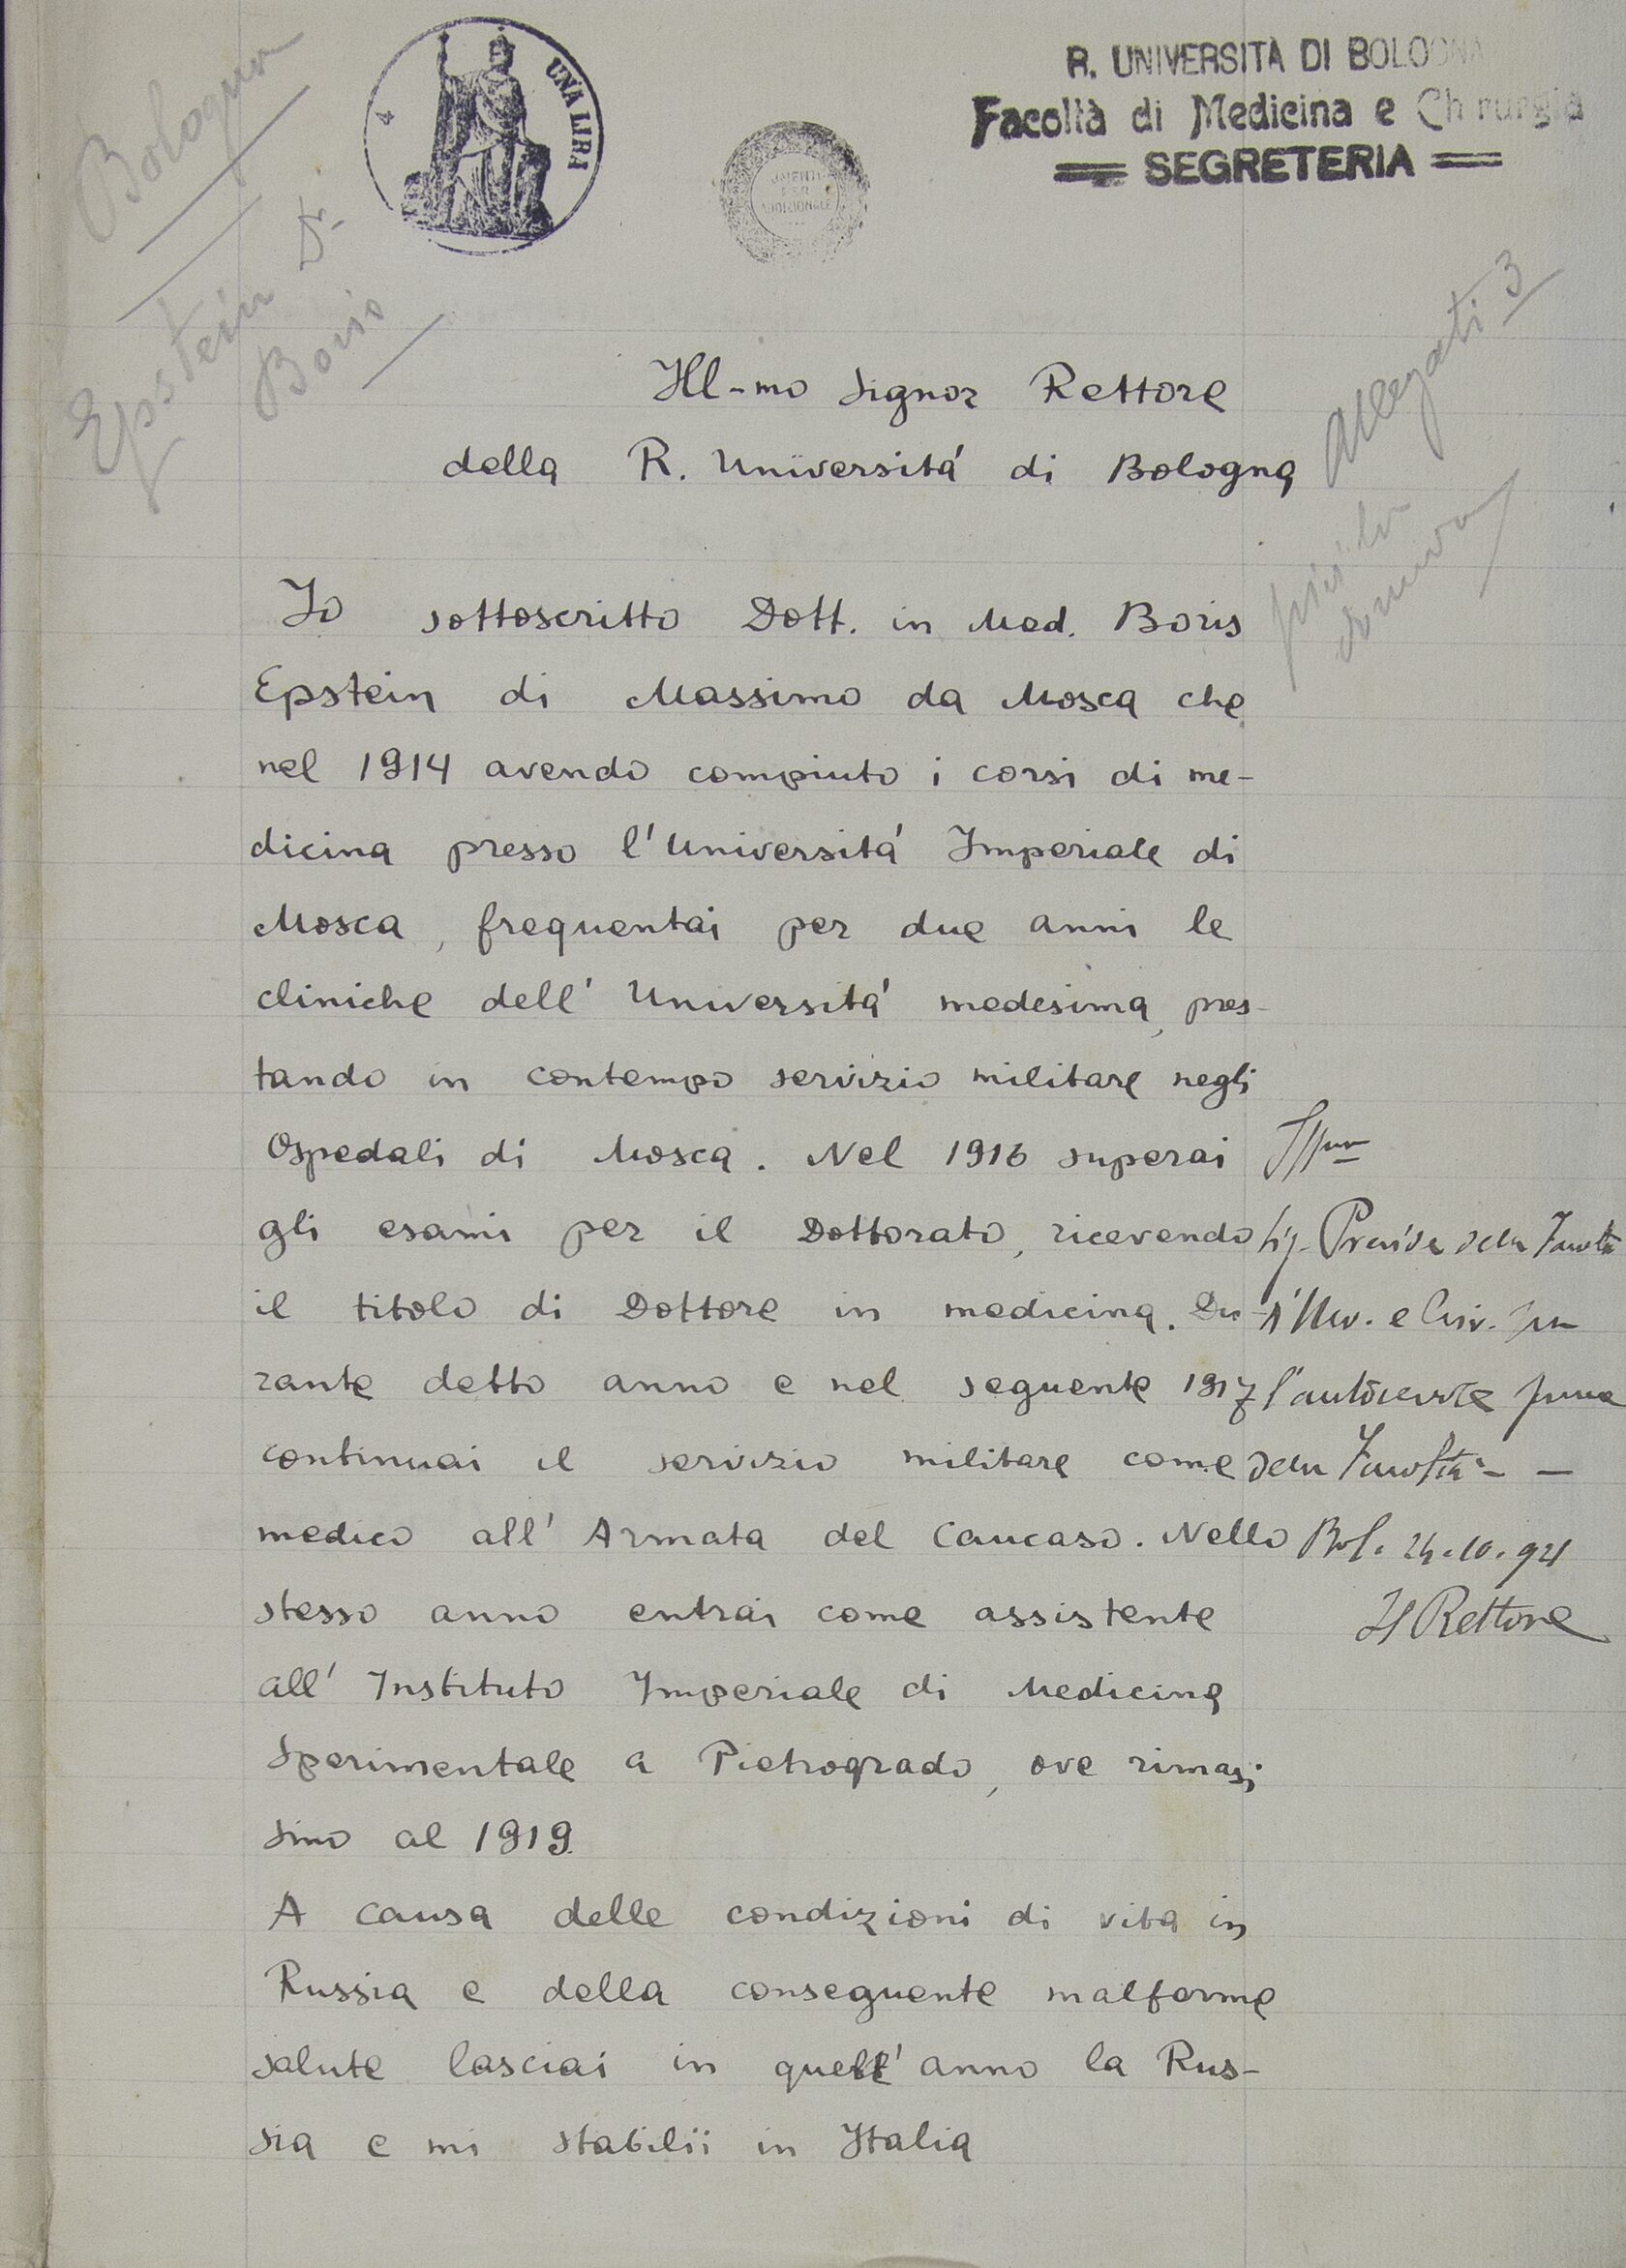 Bologna
Epstein Dr
Boris
4
UNA LIRA
R. UNIVERSITÀ DI BOLOGNA
Facoltà di Medicina e Chirurgia
SEGRETERIA
Allegati 3
Ill-mo Signor Rettore
della R. Universitá di Bologna
Io sottoscritto Dott. in Med. Boris
Epstein di Massimo da Mosca che
nel 1914 avendo compiuto i corsi di me-
dicina presso l'Universitá Imperiale di
Mosca, frequentai per due anni le
cliniche dell'Universitá medesima, pres-
tando in contempo servizio militare negli
Ospedali di Mosca. Nel 1916 superai
gli esami per il Dottorato, ricevendo
il titolo di Dottore in medicina. Du-
rante detto anno e nel seguente 1917
continuai il servizio militare come
medico all'Armata del Caucaso. Nello
stesso anno entrai come assistente
all'Instituto Imperiale di Medicina
Sperimentale a Pietrogrado, ove rimasi
sino al 1919.
A causa delle condizioni di vita in
Russia e della conseguente malferme
salute lasciai in quell'anno la Rus-
sia e mi stabilii in Italia
Sig. Preside della Facoltà
della Facoltà - -
Bol. 24.10.921
Il Rettore